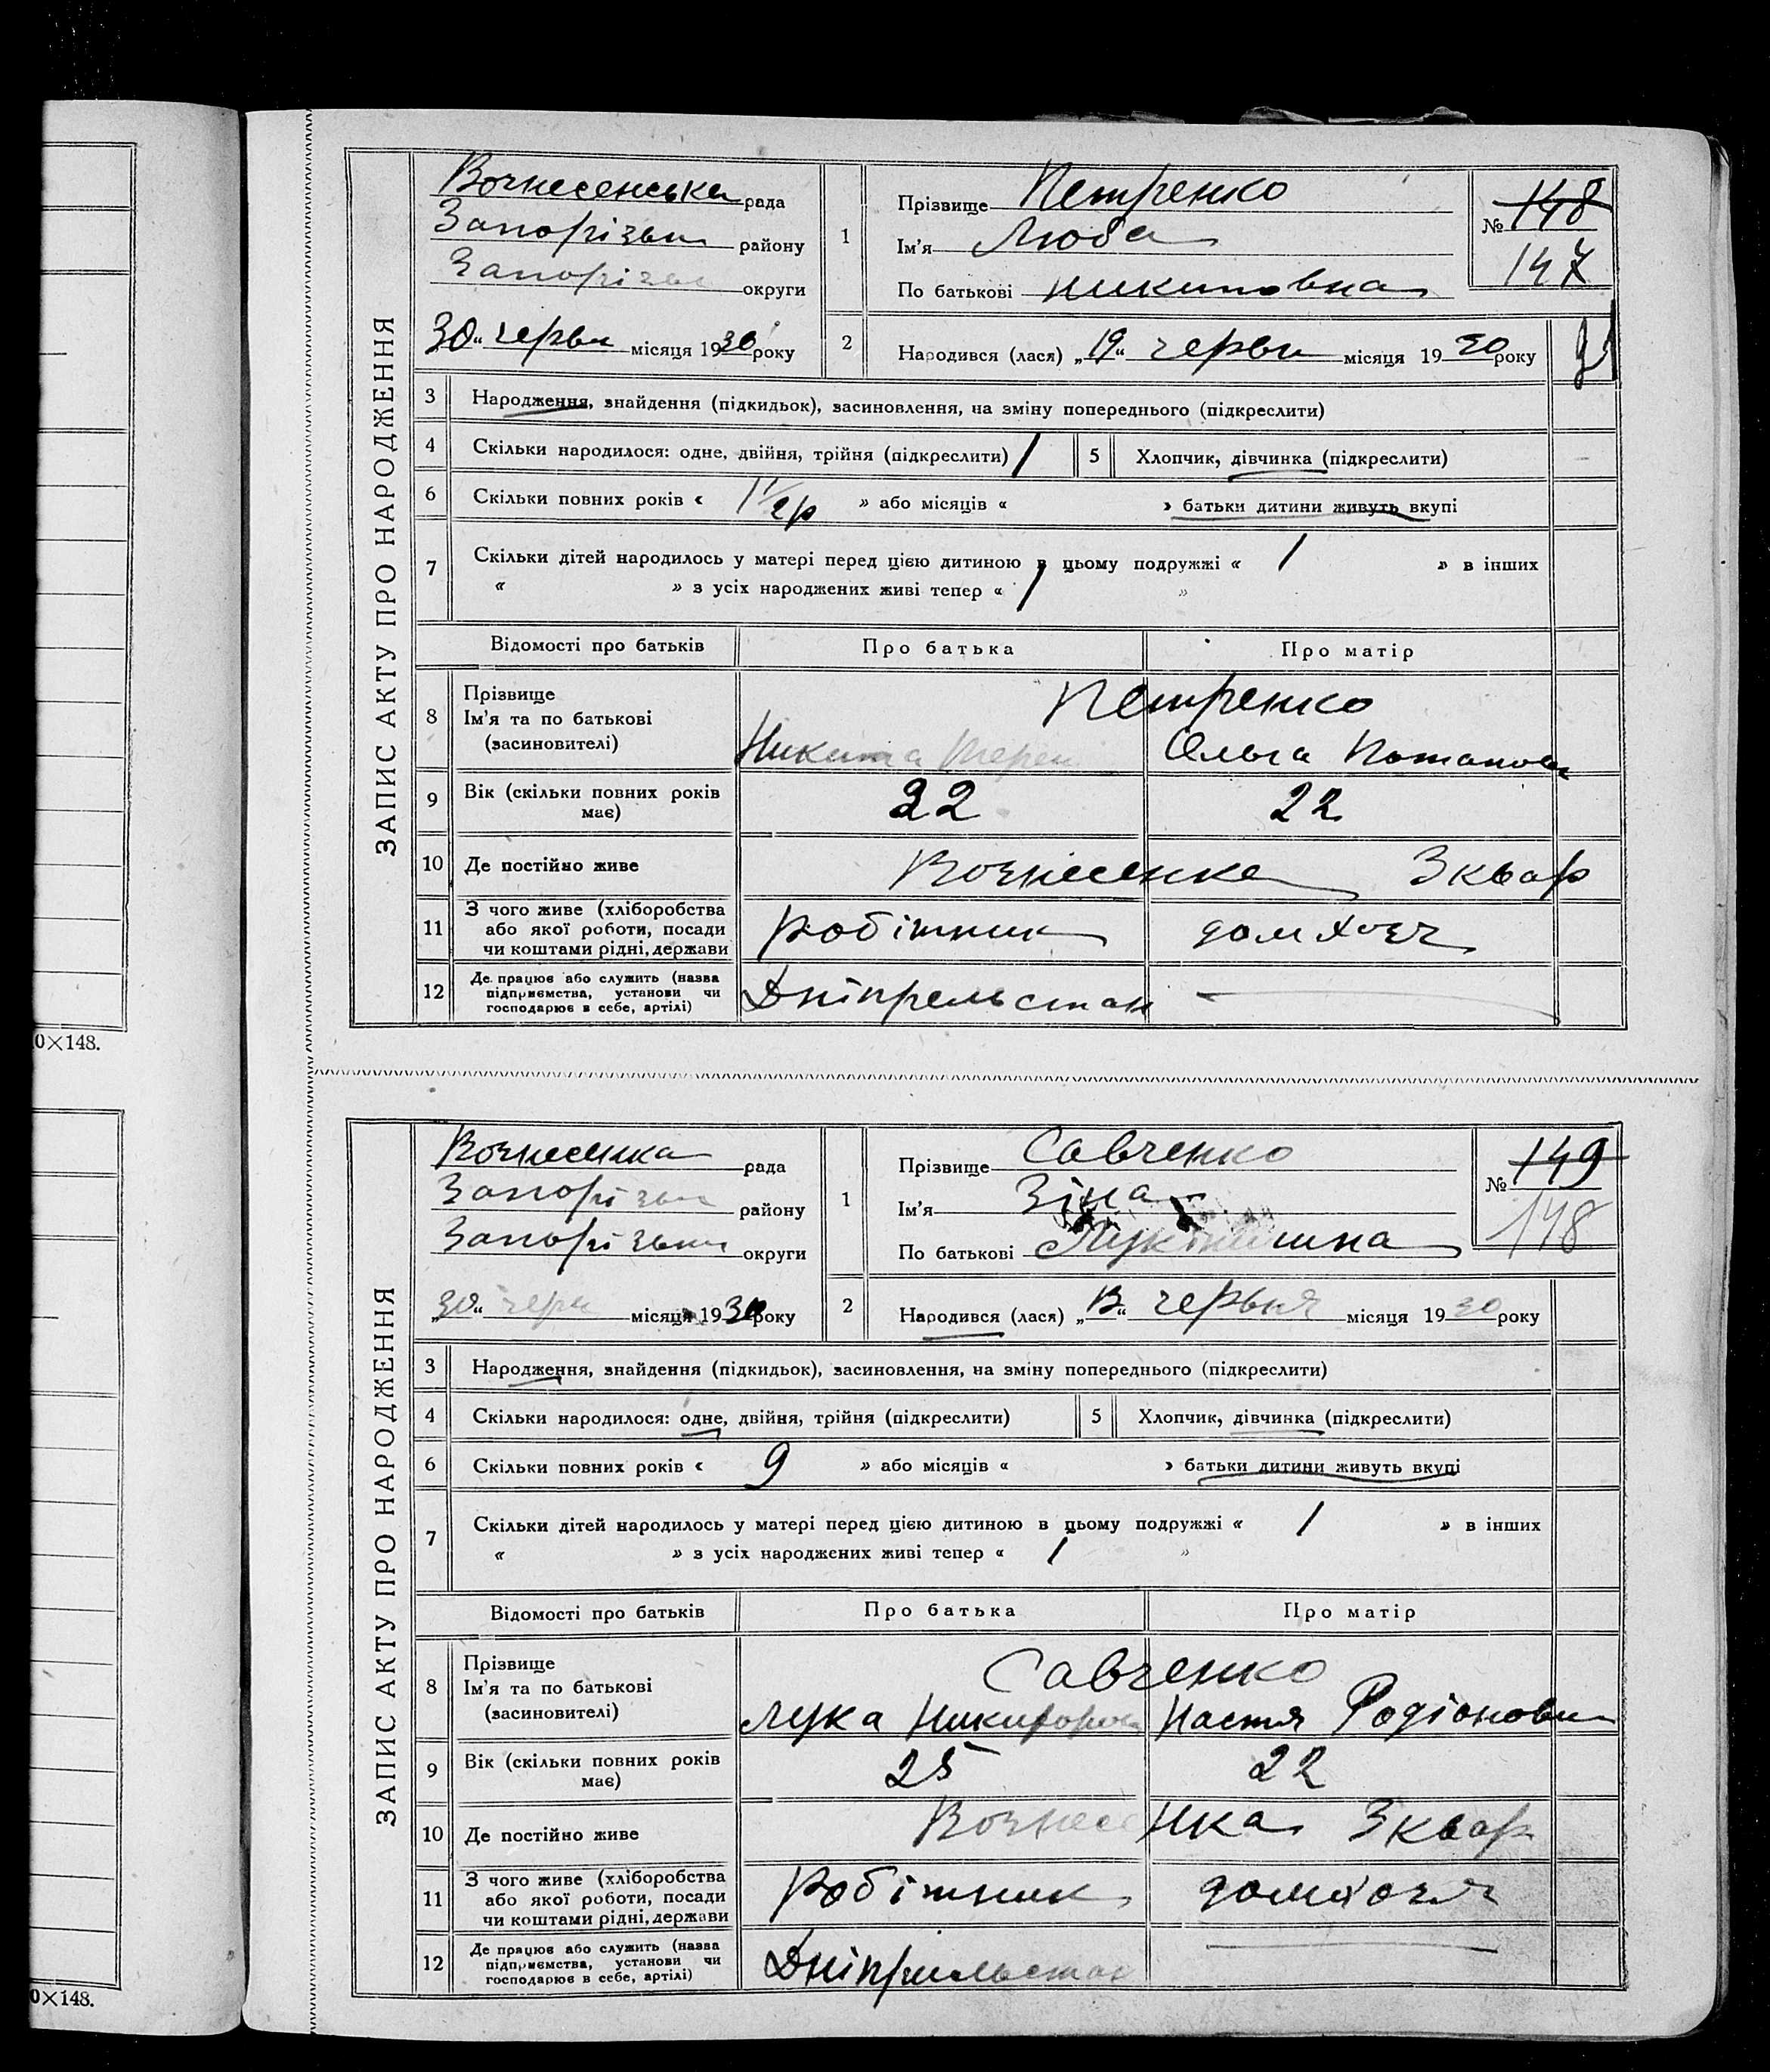 0×148.
0×148.
ЗАПИС АКТУ ПРО НАРОДЖЕННЯ
Вознесенська рада
Запорізьк району
Запорізьк округи
30 " червн місяця 1930 року
1
Прізвище Петренко
Ім'я Люба
По батькові Никитовна
№ 148
147
2
Народився (лася) „ 19 " червн місяця 1930 року
3 Народження, знайдення (підкидьок), засиновлення, на зміну попереднього (підкреслити)
4 Скільки народилося: одне, двійня, трійня (підкреслити) 5 Хлопчик, дівчинка (підкреслити)
6 Скільки повних років « 1 1/2 р » або місяців « » батьки дитини живуть вкупі
7 Скільки дітей народилось у матері перед цією дитиною в цьому подружжі « 1 » в інших
« » з усіх народжених живі тепер « 1 »
Відомості про батьків Про батька Про матір
8 Прізвище
Ім'я та по батькові
(засиновителі)
Петренко
Никита Терен Ольга Потапов
9 Вік (скільки повних років
має)
22 22
10 Де постійно живе Вознесенка 3 квар
11 З чого живе (хліборобства
або якої роботи, посади
чи коштами рідні, держави
робітник домхозя
12 Де працює або служить (назва
підприємства, установи чи
господарює в себе, артілі)
Дніпрельстан —
ЗАПИС АКТУ ПРО НАРОДЖЕННЯ
Вознесенка рада
Запорізьк району
Запорізьк округи
„30" черн місяця 1930 року
1
Прізвище Савченко
Ім'я Зіна
По батькові
№ 149
148
2
Народився (лася) „ 12 " червня місяця 1930 року
3 Народження, знайдення (підкидьок), засиновлення, на зміну попереднього (підкреслити)
4 Скільки народилося: одне, двійня, трійня (підкреслити) 5 Хлопчик, дівчинка (підкреслити)
6 Скільки повних років « 9 » або місяців « » батьки дитини живуть вкупі
7 Скільки дітей народилось у матері перед цією дитиною в цьому подружжі « 1 » в інших
« » з усіх народжених живі тепер « 1 »
Відомості про батьків Про батька Про матір
8 Прізвище
Ім'я та по батькові
(засиновителі)
Савченко
Лука Никифоров Настя Родіоновн
9 Вік (скільки повних років
має)
25 22
10 Де постійно живе Вознесенка 3 квар
11 З чого живе (хліборобства
або якої роботи, посади
чи коштами рідні, держави
робітник домхозя
12 Де працює або служить (назва
підприємства, установи чи
господарює в себе, артілі)
Дніпрельстан —